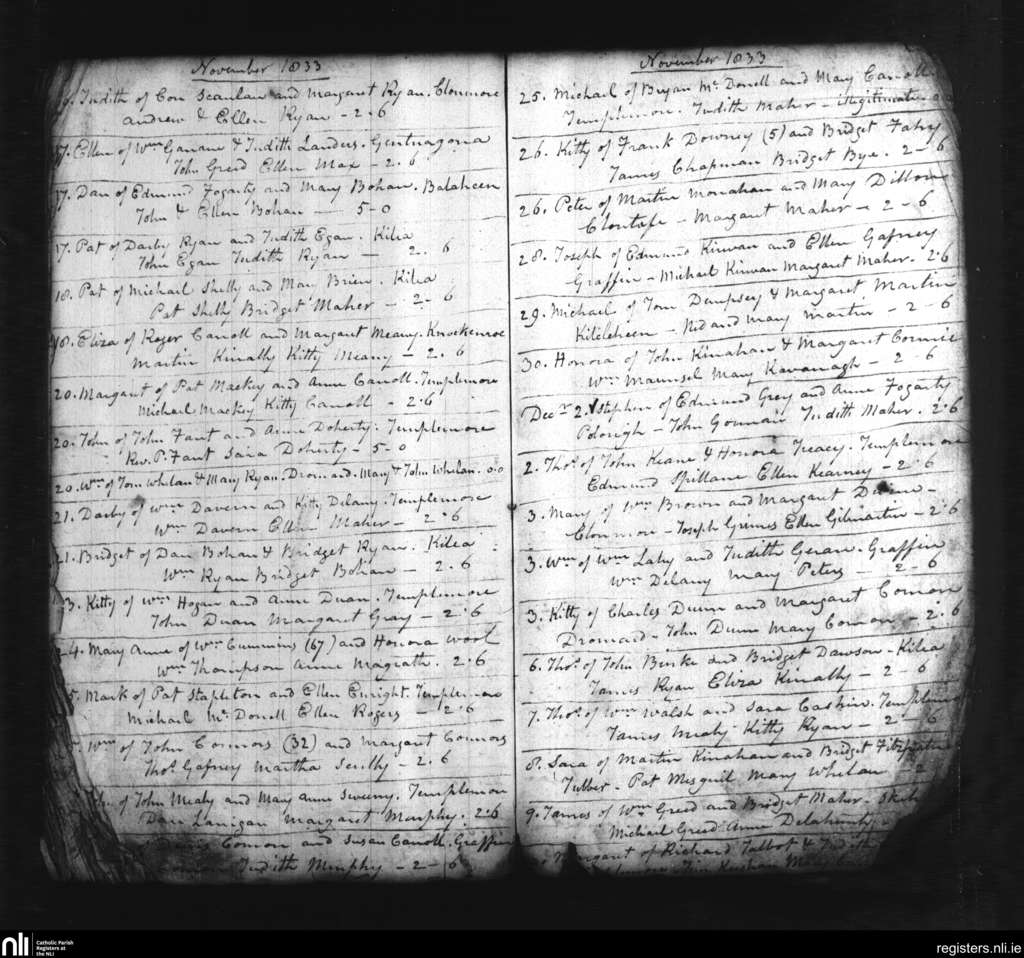 November 1833
Judith of Con Scanlan and Margaret Ryan. Clonmore
Andrew & Ellen Ryan - 2.6
17. Ellen of Wm Ganane & Judith Landers. Gentnagona
John Greed Ellen Max - 2.6
17. Dan of Edmund Fogarty and Mary Bohan. Balaheen
John & Ellen Bohan - 5-0
17. Pat of Darby Ryan and Judith Egan. Kilea
John Egan Judith Ryan - 2. 6
18. Pat of Michael Shelly and Mary Brien. Kilea
Pat Shelly Bridget Maher - 2. 6
18. Eliza of Roger Carroll and Margaret Meany. Knockanroe
Martin Kinally Kitty Meany - 2. 6
20. Margaret of Pat Mackey and Anne Carroll. Templemore
Michael Mackey Kitty Carroll - 2.6
20. John of John Fant and Anne Doherty. Templemore
Rev. P. Fant Sara Doherty - 5-0
20. Wm of Tom Whelan & Mary Ryan. Dromard. Mary & John Whelan. 0-0
21. Darby of Wm Davern and Kitty Delany. Templemore
Wm Davern Ellen Maher - 2.6
21. Bridget of Dan Bohan & Bridget Ryan. Kilea
Wm Ryan Bridget Bohan - 2.6
3. Kitty of Wm Hogan and Anne Duan. Templemore
John Duan Margaret Gray - 2.6
24. Mary Anne of Wm Cummins (67) and Honora Wool
Wm Thompson Anne Magrath. 2.6
5. Mark of Pat Stapleton and Ellen Enright. Templemore
Michael Mc Donell Ellen Rogers - 2.6
Wm of John Connors (32) and Margaret Connors
Thos. Gafney Martha Scully - 2.6
of John Mealy and Mary Anne Sweeny. Templemore
Dan Lanigan Margaret Murphy. 2.6
Comon and Susan Carroll. Graffin
Judith Murphy - 2-6
November 1833
25. Michael of Bryan Mc Donell and Mary Carroll
Templemore. Judith Maher - illegitimate
26. Kitty of Frank Downey (5) and Bridget Fahy
James Chapman Bridget Bye. 2-6
26. Peter of Martin Monahan and Mary Dillon
Clontafe - Margaret Maher - 2-6
28. Joseph of Edmund Kirwan and Ellen Gafney
Graffin - Michael Kirwan Margaret Maher. 2.6
29. Michael of Tom Dempsey & Margaret Martin
Kilcleheen - Ned and Mary Martin - 2-6
30. Honora of John Kinahan & Margaret Cormic
Wm Maunsel Mary Kavanagh - 2-6
Decr 2. Stephen of Edmund Grey and Anne Fogarty
John Gounan Judith Maher. 2.6
2. Thos. of John Keane & Honora Treacy. Templemore
Edmund Spillane Ellen Kearney - 2.6
3. Mary of Wm Brown and Margaret Dunne -
Clonmore - Joseph Grumes Ellen Gilmartin - 2.6
3. Wm of Wm Lahy and Judith Geran. Graffin
Wm Delany Mary Peters - 2-6
3. Kitty of Charles Dunn and Margaret Comon
Dromard - John Dunn Mary Comon - 2.6
6. Thos. of John Burke and Bridget Dawson - Kilea
James Ryan Eliza Kinally - 2-6
7. Thos. of Wm Walsh and Sara Caskin. Templemore
James Mealy Kitty Ryan - 2-6
8. Sara of Martin Kinahan and Bridget Fitzpatrick
Tubber - Pat Mesquil Mary Whelan - 2
9. James of Wm Greed and Bridget Maher.
Michael Greed Anne Delahunty -
Margaret of Richard Talbot & Judith
nli
Catholic Parish
Registers at
the NLI
registers.nli.ie